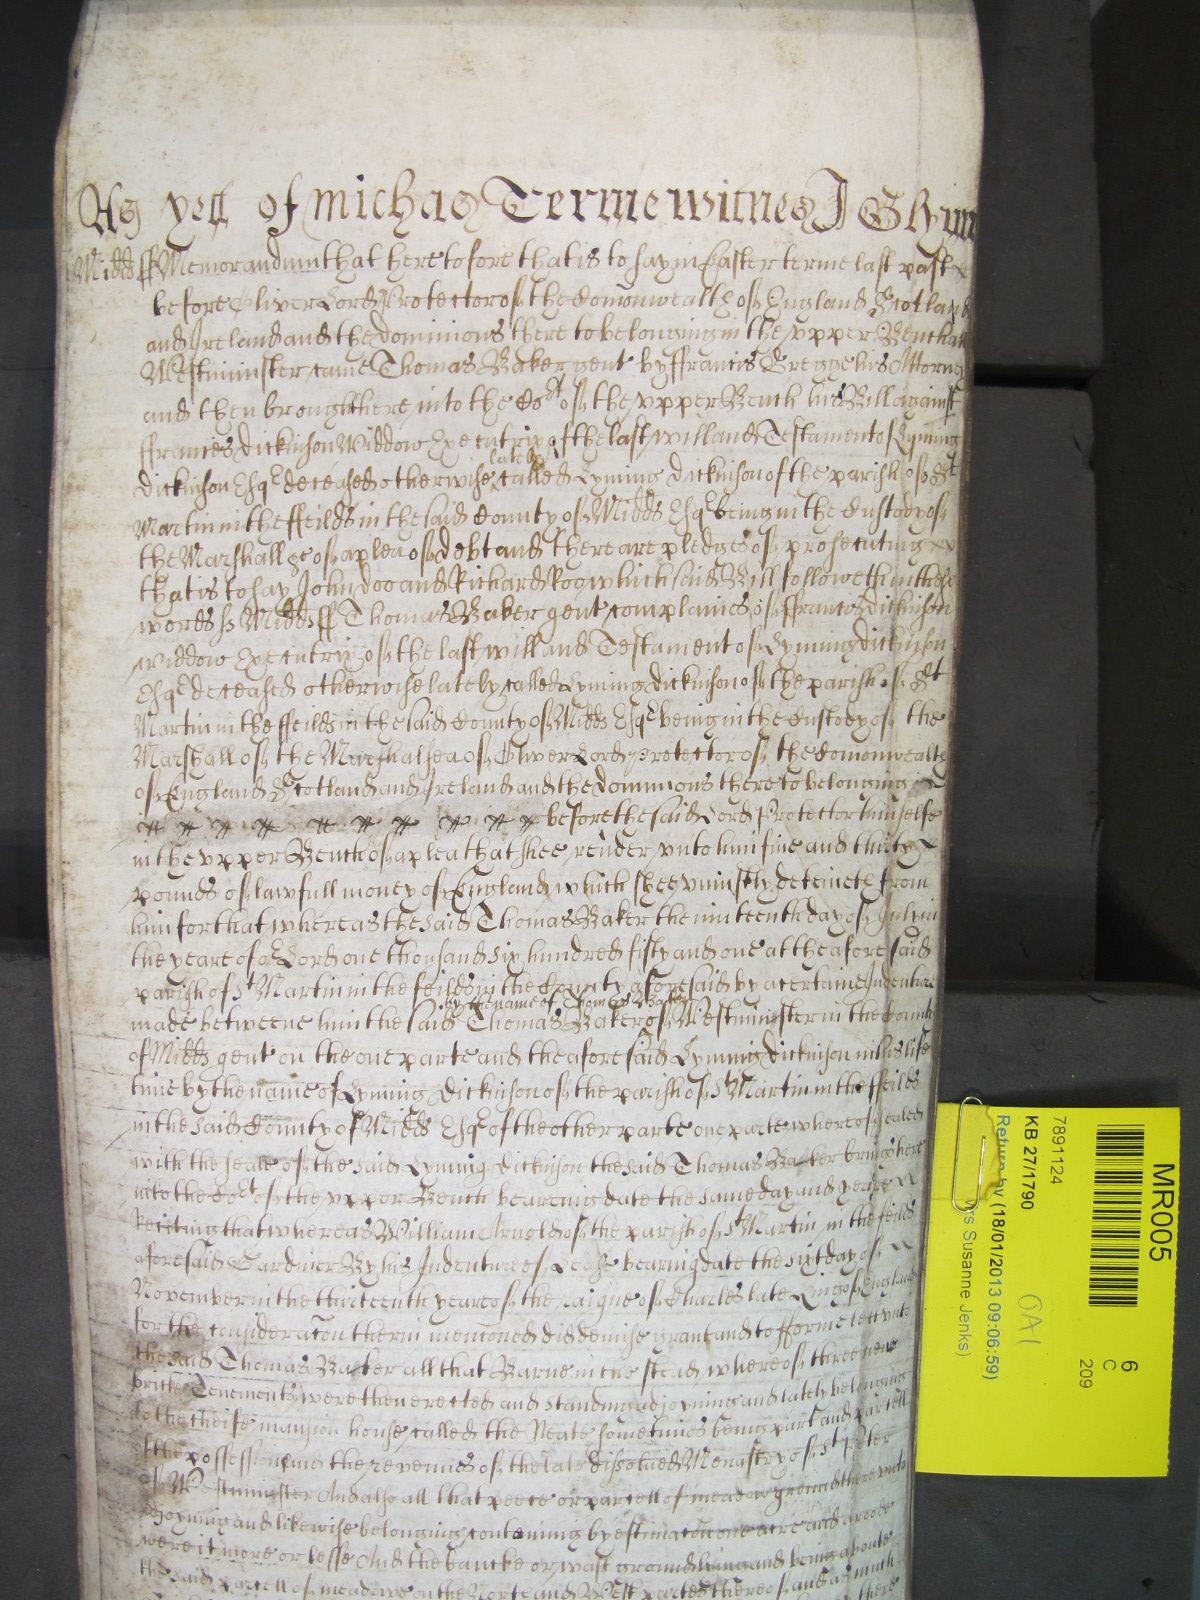 As yett of Michas Terme witnes J Glynn
Midds ss Memorandum that heretofore that is to say in Easter terme last past
before Oliver Lord Protector of the Comonwealth of England Scotland
and Ireland and the dominions there to belonging in the upper Bench att
Westminster came Thomas Baker gent by ffrancis Gregge his Attorney
and then brought here into the Cort of the upper Bench his Bill against
ffrances Dickinson Widdow Executrix of the last will and Testament of Lyming
Dickinson Esqr deceased otherwise lately called Lyming Dickinson of the parish of St
Martin in the ffeilds in the said County of Midds Esqr being in the Custody of
the Marshall &c of a plea of debt and there are pledges of prosecuting
that is to say John Doo and Richard Roo which said Bill followeth in these
words ss Midds ss Thomas Baker gent complaines of ffrances Dickinson
widdow Executrix of the last will and Testament of Lyming Dickinson
Esqr deceased otherwise lately called Lyming Dickinson of the parish of St
Martin in the ffeilds in the said County of Midds Esqr being in the Custody of the
Marshall of the Marshalsea of Oliver Lord Protector of the Comonwealth
of England Scotland and Ireland and the dominions there to belonging
before the said Lord Protector himselfe
in the upper Bench of a plea that shee render unto him five and thirty
pounds of lawfull money of England which shee uniustly deteineth from
him for that whereas the said Thomas Baker the ninteenth day of July in
the yeare of or Lord one thousand six hundred fifty and one at the aforesaid
parish of St Martin in the feilds in the County aforesaid by a certaine Indenture
made betweene him the said Thomas Baker by the name of Thomas Baker of Westminster in the County
of Midds gent on the one parte and the aforesaid Lyming Dickinson in his life
time by the name of Lyming Dickinson of the parish of St Martin in the ffeilds
in the said County of Midds Esqr of the other parte one parte whereof sealed
with the seale of the said Lyming Dickinson the said Thomas Baker brings here
into the Cort of the upper Bench beareing date the same day and yeare
Reciting that whereas William Arnold of the parish of St Martin in the feilds
aforesaid Gardiner By his Indenture of Lease bearing date the sixt day of
November in the thirteenth yeare of the raigne of Charles late King of England
for the consideracon therin mencioned did demise grant and to fferme lett unto
the said Thomas Baker all that Barne in the stead whereof three new
bricke Tenements were then erected and standing adjoyning and lately belonging
to the cheife mansion house called the Neate sometimes being part and parcell
of the possessions and the revenues of the late dissolved Monastry of St Peter
of Westminster And also all that peece or parcell of meadow ground thereunto
adjoyning and likewise belonging conteining by estimacon one acre and a roode
were it more or lesse And the bancke or wast ground lying and being aboute
the said parcell of meadowe on the North and West partes thereof and as much
MR005
6
C
209
7891124
KB 27/1790
OA1
Return by (18/01/2013 09:06:59)
Susanne Jenks)